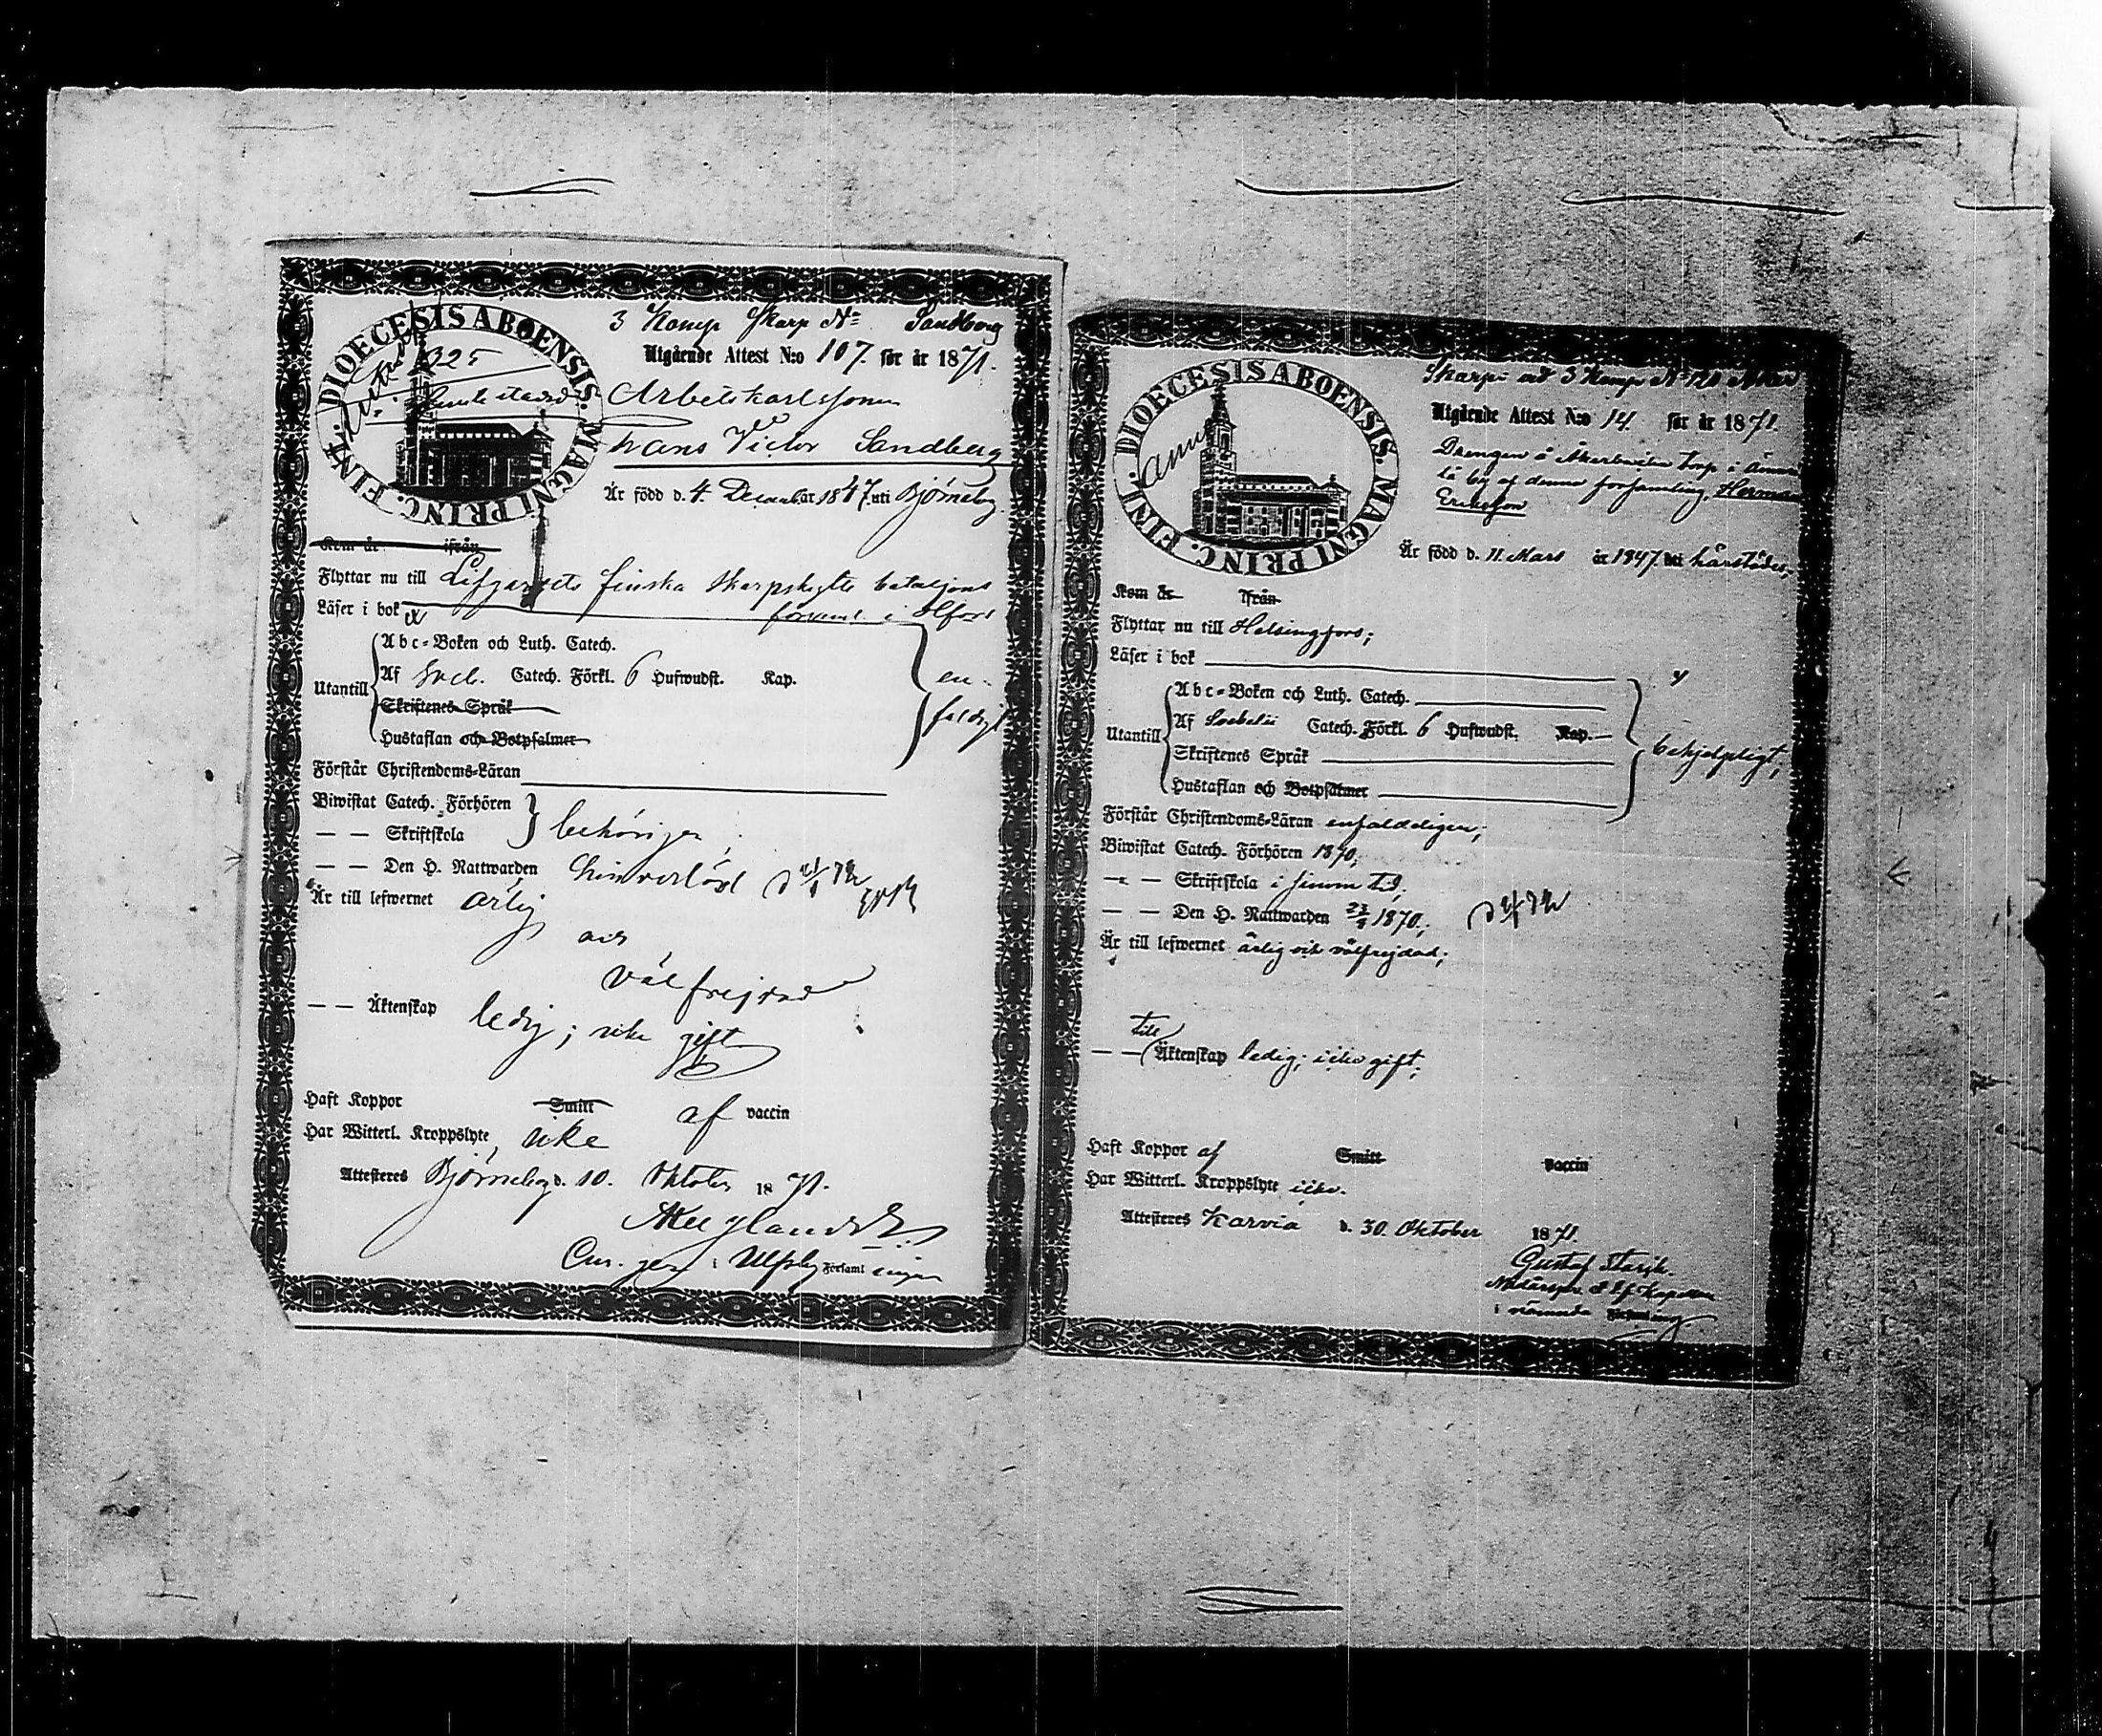 3 Komp Skarp No Sandberg
Utgående Attest N:o 107. för år 1871.
DIOECESIS ABOENSIS. MAGNI PRINC. FINL.
325
Arbetskarlssonen
Frans Victor Sandberg
Är född d. 4 December år 1847. uti Björneborg.
Kom år ifrån
Flyttar nu till Lifgardets finska skarpskytte bataljons
Läser i bok förseml. i Hfors
Abc-Boken och Luth. Catech.
Utantill Af Sveb. Catech. Förkl. 6 Hufwudst. Kap. en-
Skriftenes Språk faldigt
Hustaflan och Botpsalmer
Förstår Christendoms-Läran
Biwistat Catech. Förhören
— — Skriftskola behörigen;
— — Den H. Nattwarden
Är till lefwernet ärlig
och
välfrejdad
— — Äktenskap ledig; icke gift
Haft Koppor Smitt af vaccin
Har Witterl. Kroppslyte, icke
Attesteras Björneborg d. 10. Oktober 1871.
i Ulfsby Församlingen
Skarpsk. vid 3 Komp. N 120
Utgående Attest N:o 14 för år 1871
DIOECESIS ABOENSIS. MAGNI PRINC. FINL.
Drengen å torp i
lä by af denna församling, Herman
Eriksson
Är född d. 11. Mars år 1847. uti härstädes;
Kom år Ifrån
Flyttar nu till Helsingfors;
Läser i bok
Abc-Boken och Luth. Catech.
Utantill Af Svebelii Catech. Förkl. 6 Hufwudst. Kap.
Skriftenes Språk behjelpligt;
Hustaflan och Botpsalmer
Förstår Christendoms-Läran enfaldeligen;
Biwistat Catech. Förhören 1870;
— — Skriftskola i sinom tid.
— — Den H. Nattwarden 23/9 1870.;
Är till lefwernet ärlig och välfrejdad;
till
— — Äktenskap ledig; icke gift;
Haft Koppor af Smitt vaccin
Har Witterl. Kroppslyte icke.
Attesteras Karvia d. 30. Oktober 1871.
Gustaf
i nämnda Församling